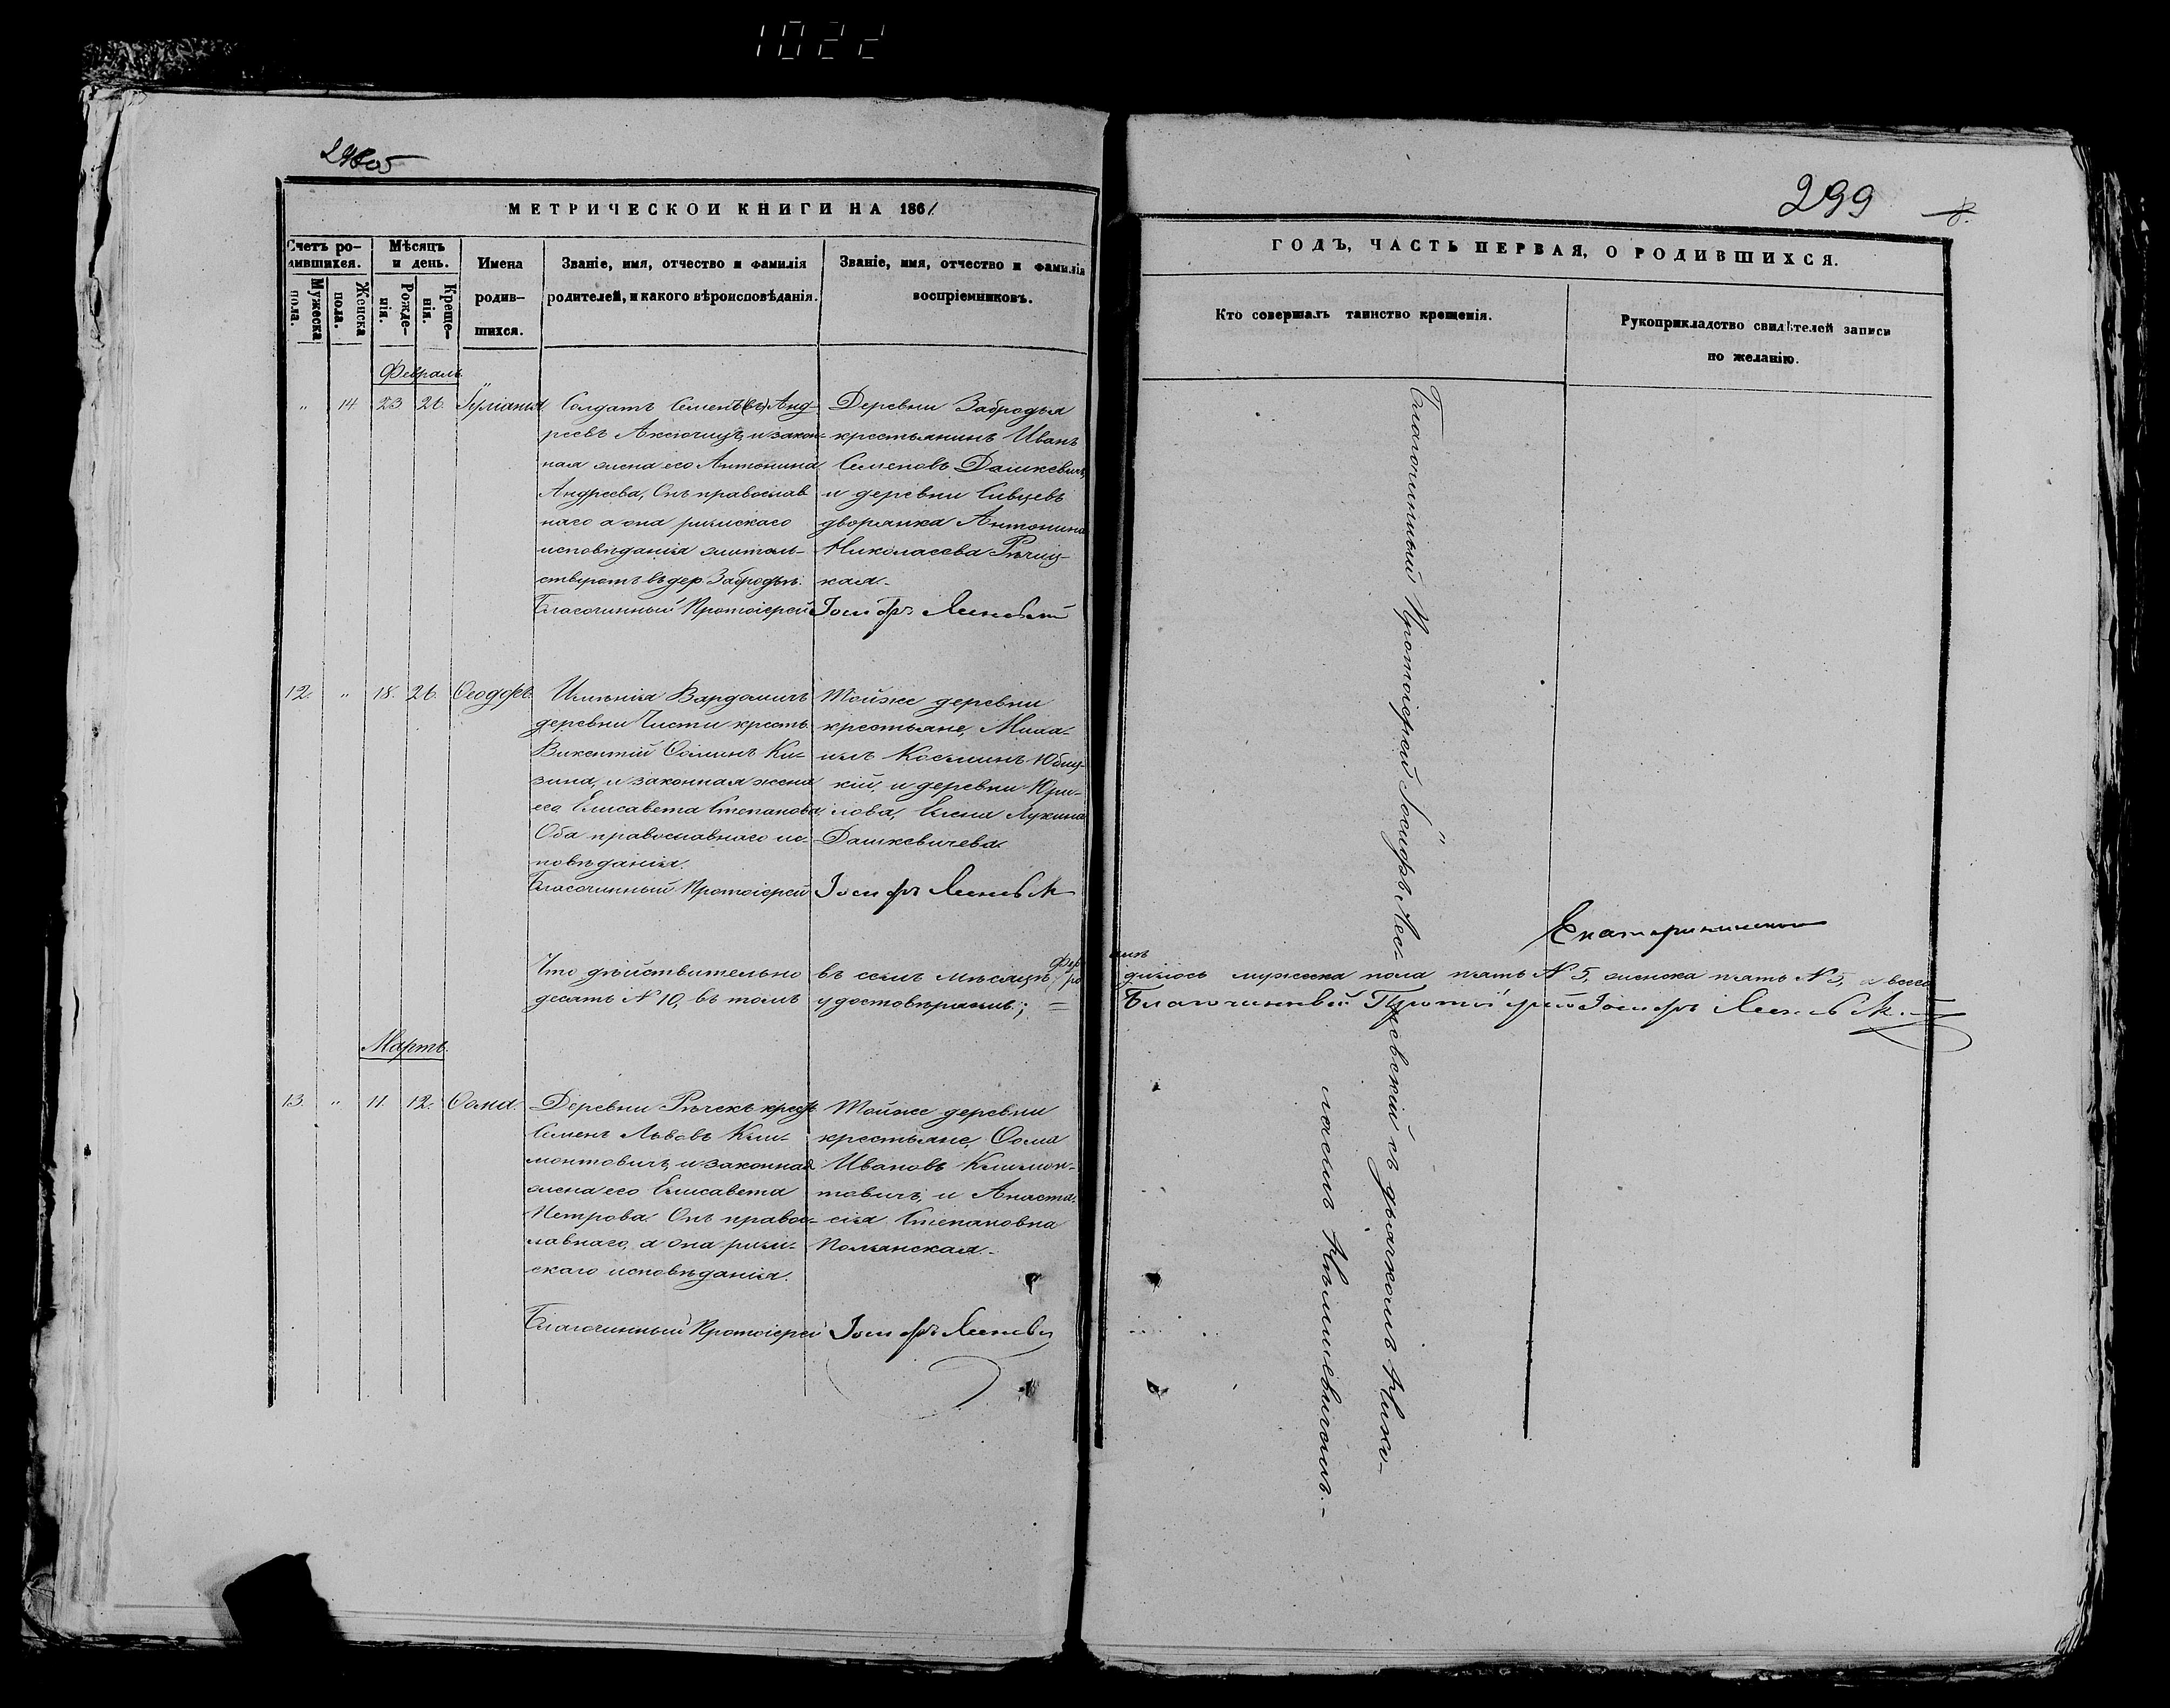 1022
299
МЕТРИЧЕСКОЙ КНИГИ НА 1861
ГОДЪ, ЧАСТЬ ПЕРВАЯ, О РОДИВШИХСЯ.
Счетъ ро-
дившихся.
Мужеска
пола.
Женска
пола.
Мѣсяцъ
и день.
Рожде-
нія.
Креще-
нія.
Имена
родив-
шихся.
Званіе, имя, отчество и фамилія
родителей, и какого вѣроисповѣданія.
Званіе, имя, отчество и фамилія
воспріемниковъ.
Кто совершалъ таинство крещенія.
Рукоприкладство свидѣтелей записи
по желанію.
Февраль
" 14 23 26. Іуліанія
Солдатъ Семенъ Анд-
реевъ Аксючицъ, и закон-
ная жена его Антонина
Андреева, Онъ православ
наго а она римскаго
исповѣданія житель-
ствуютъ въ дер. Забродьѣ.
Благочинный Протоіерей
Деревни Забродья
крестьянинъ Иванъ
Семеновъ Дашкевичъ,
и деревни Сивцевъ
дворянка Антонина
Николаева Рѣчиц-
кая.-
Іосифъ
12. " 18. 26. Ѳеодоръ.
Имѣнія Вардомичъ
деревни Чисти крестъ.
Викентій Ѳоминъ Ки-
зина, и законная жена
его Елисавета Степанова.
Оба православнаго ис-
повѣданія.
Благочинный Протоіерей
Тойже деревни
крестьяне, Миха-
илъ Косминъ Юбиц-
кій, и деревни Кри-
лова, Елена Лукина
Дашкевичева.
Іосифъ
Что дѣйствительно въ семъ мѣсяцѣ Февралѣ ро
дилось мужеска пола пять №5, женска пять №5, а всего
десять №10, въ томъ удостовѣряемъ; =
Благочинный Протоіерей Іосифъ
Мартъ.
13. " 11. 12. Ѳома.
Деревни Рѣчекъ крест
Семенъ Львовъ Кли-
монтовичъ, и законная
жена его Елисавета
Петрова. Онъ правос-
лавнаго, а она рим-
скаго исповѣданія.
Благочинный Протоіерей
Тойже деревни
крестьяне, Ѳома
Ивановъ Климон-
товичъ, и Анаста-
сія Степановна
Полянская.-
Іосифъ
Благочинный Протоіерей Іосифъ
съ дьячкомъ Нико-
лаемъ